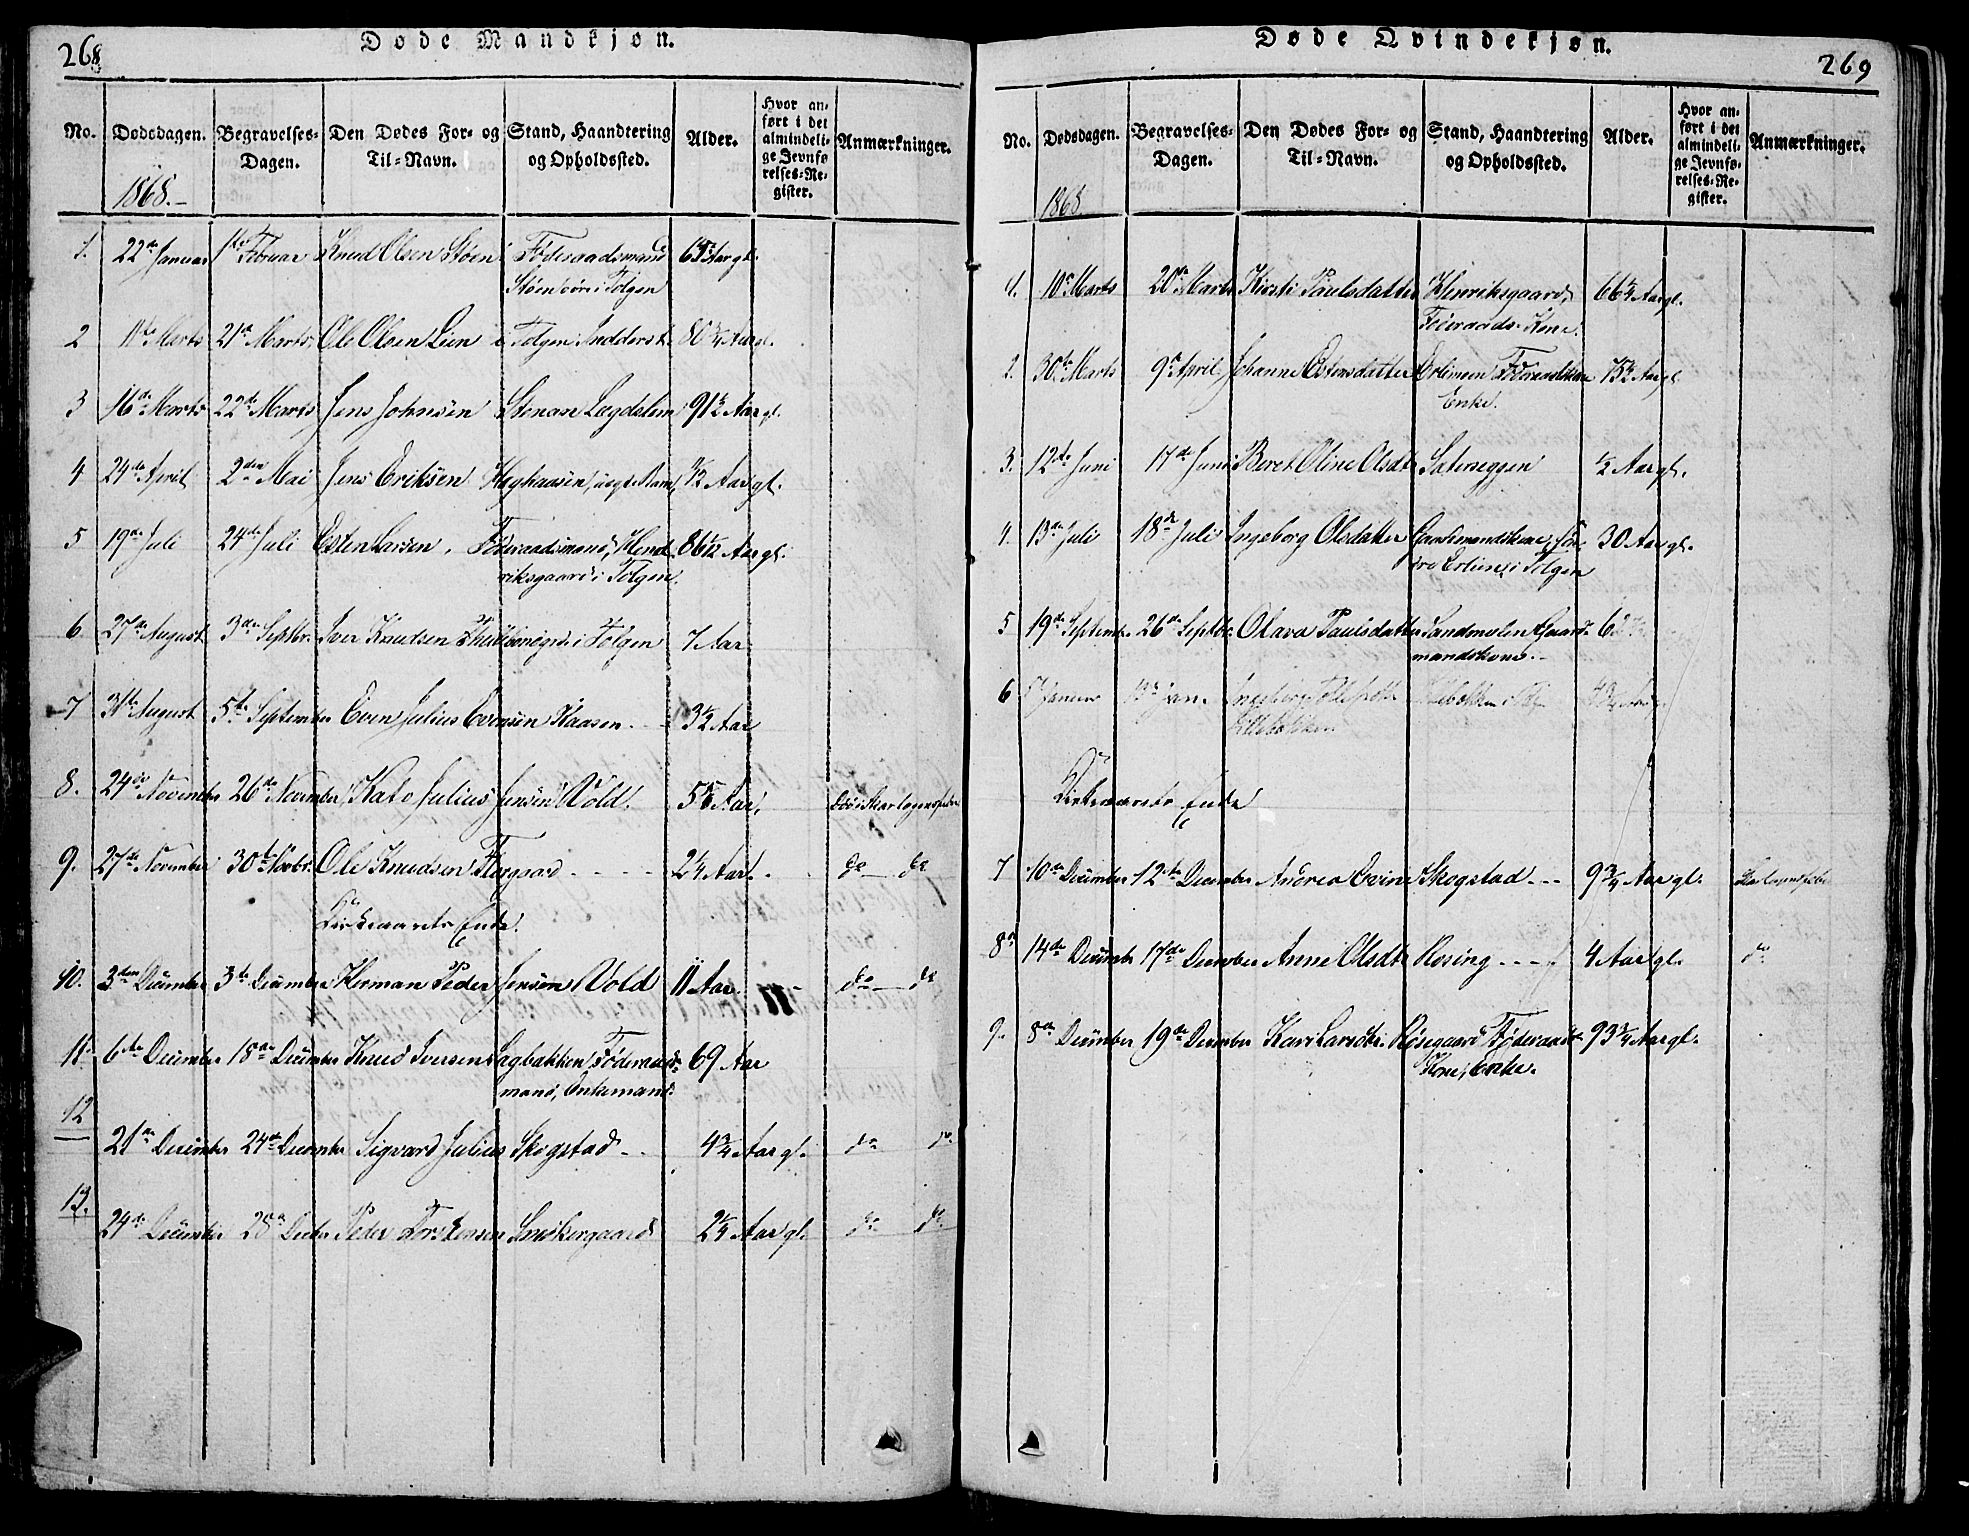 268
Døde Mandkjøn.
No. Dødsdagen. Begravelses-Dagen. Den Dødes For- og Til-Navn. Stand, Haandtering og Opholdssted. Alder. Hvor anført i det almindelige Jevnførelses-Register. Anmærkninger.
1868.-
1. 22de Januar 1ste Februar Knud Olsen Støen Føderaadsmand 65 Aar gl.
Støen øvre i Tolgen
2 11te Marts 21de Marts Ole Olsen Lien i Tolgen Indderst. 80 3/4 Aar gl.
3 16de Marts 22de Marts Jens Johnsen Stenase Lægdslem 91 1/2 Aar gl.
4 24de April 2den Mai Jens Eriksen Høghaasen, uægte Barn, 1/2 Aar gl.
5 19de Juli 24de Juli Esten Larsen, Føderaadsmand, Hend- 86 1/2 Aar gl.
riksgaard i Tolgen.
6 27de August 3die Septbr. Iver Knudsen i Tolgen 7 Aar
7 31te August 5te September Even Julius Evensen Kaasen 3 1/2 Aar
8. 24de November 26de November Kato Julius Jensen Vold. 5 Aar, Død i Skarlagensfeber
9. 27de November 30te Novbr. Ole Knudsen Florgaard - - - - 2 1/4 Aar. do do
Kirkeaarets Ende.
10. 3den December 3de December Herman Peder Jensen Vold 11 Aar do do
11. 6te December 18de December Knud Iversen Lagbakken, Føderaads- 69 Aar
mand, Enkemand.
12
21de December 24de December Sigvard Julius Skogstad - - 4 3/4 Aar gl. do do
13.
24de December 28de Decbr Peder Torstensen Snedkergaard 2 1/4 Aar gl. do do
Døde Qvindekjøn.
269
No. Dødsdagen. Begravelses-Dagen. Den Dødes For- og Til-Navn. Stand, Haandtering og Opholdssted. Alder. Hvor anført i det almindelige Jevnførelses-Register. Anmærkninger.
1868.
1. 10de Marts 20de Marts Kirsti Paulsdatter Henriksgaard, 66 1/4 Aar gl.
Føderaads-Kone.
2. 30te Marts 9de April Johanne Estensdatter Erlieneen Føderaadskone 75 Aar gl
Enke.
3. 12te Juni 17de Juni Beret Oline Olsdtr Sætereggen 1/2 Aar gl.
4. 13de Juli 18de Juli Ingeborg Olsdatter Gaardmandskone, 30 Aar gl.
Erlien i Tolgen
5 19de September 26de Septbr. Olava Paulsdatter Sandmolen Gaard- 6
mandskone.-
6 Januar Jan. Ingeborg
Lillebakken
Kirkeaarets Ende
7 10de December 12te December Andrea Evine Skogstad - - - 9 3/4 Aar gl. Skarlagensfeber
8de 14de December 17de December Anne Olsdtr Røsing - - - 4 Aar gl. do
9. 8de December 19de December Kari Larsdtr. Røsegaard Føderaads- 93 3/4 Aar gl.
Kone, Enke.